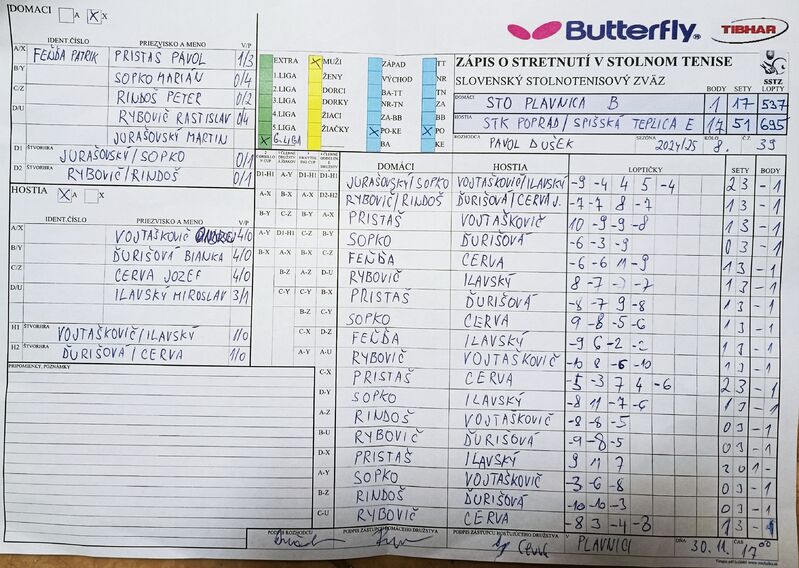 DOMACI A X
Butterfly
TIBHAR
SSTZ
IDENT.ČÍSLO PRIEZVISKO A MENO V/P
A/X FENĎA PATRIK PRISTAŠ PAVOL 1/3
B/Y SOPKO MARIÁN 0/4
C/Z RINDOŠ PETER 0/2
D/U RYBOVIČ RASTISLAV 0/4
JURAŠOVSKÝ MARTIN
D1 ŠTVORHRA JURAŠOVSKÝ/SOPKO 0/1
D2 ŠTVORHRA RYBOVIČ/RINDOŠ 0/1
HOSTIA X X
IDENT.ČÍSLO PRIEZVISKO A MENO V/P
A/X VOJTAŠKOVIČ ONDREJ 4/0
B/Y ĎURIŠOVÁ BIANKA 4/0
C/Z CERVA JOZEF 4/0
D/U ILAVSKÝ MIROSLAV 3/1
H1 ŠTVORHRA VOJTAŠKOVIČ/ILAVSKÝ 1/0
H2 ŠTVORHRA ĎURIŠOVÁ/CERVA 1/0
PRIPOMIENKY, POZNÁMKY
EXTRA MUŽI ZÁPAD TT
1.LIGA ŽENY VÝCHOD NR
2.LIGA DORCI BA-TT TN
3.LIGA DORKY NR-TN ZA
4.LIGA ŽIACI ZA-BB BB
5.LIGA ŽIAČKY PO-KE PO
6.LIGA BA KE
ZÁPIS O STRETNUTÍ V STOLNOM TENISE
SLOVENSKÝ STOLNOTENISOVÝ ZVÄZ
BODY SETY LOPTY
DOMÁCI STO PLAVNICA B 1 17 537
HOSTIA STK POPRAD/SPIŠSKÁ TEPLICA E 17 51 695
ROZHODCA PAVOL DUŠEK SEZÓNA 2024/25 KOLO 8. Č.Z. 39
DOMÁCI HOSTIA LOPTIČKY SETY BODY
JURAŠOVSKÝ/SOPKO VOJTAŠKOVIČ/ILAVSKÝ -9 -4 4 5 -4 2 3 - 1
RYBOVIČ/RINDOŠ ĎURIŠOVÁ/CERVA J. -7 -7 8 -7 1 3 - 1
PRISTAŠ VOJTAŠKOVIČ 10 -9 -9 -8 1 3 - 1
SOPKO ĎURIŠOVÁ -6 -3 -9 0 3 - 1
FENĎA CERVA -6 -6 11 -9 1 3 - 1
RYBOVIČ ILAVSKÝ 8 -7 -7 -7 1 3 - 1
PRISTAŠ ĎURIŠOVÁ -8 -7 9 -8 1 3 - 1
SOPKO CERVA 9 -8 -5 -6 1 3 - 1
FENĎA ILAVSKÝ -9 6 -2 -2 1 3 - 1
RYBOVIČ VOJTAŠKOVIČ -10 8 -6 -10 1 3 - 1
C-X PRISTAŠ CERVA -5 -3 7 4 -6 2 3 - 1
D-Y SOPKO ILAVSKÝ -8 11 -7 -6 1 3 - 1
A-Z RINDOŠ VOJTAŠKOVIČ -8 -8 -5 0 3 - 1
B-U RYBOVIČ ĎURIŠOVÁ -9 -8 -5 0 3 - 1
D-X PRISTAŠ ILAVSKÝ 9 11 7
A-Y SOPKO VOJTAŠKOVIČ -3 -6 -8 0 3 - 1
B-Z RINDOŠ ĎURIŠOVÁ -10 -10 -3 0 3 - 1
C-U RYBOVIČ CERVA -8 3 -4 -8 1 3 - 1
PODPIS ROZHODCU PODPIS ZÁSTUPCU DOMÁCEHO DRUŽSTVA PODPIS ZÁSTUPCU HOSŤUJÚCEHO DRUŽSTVA V PLAVNICI DŇA 30.11. ČAS 17 00